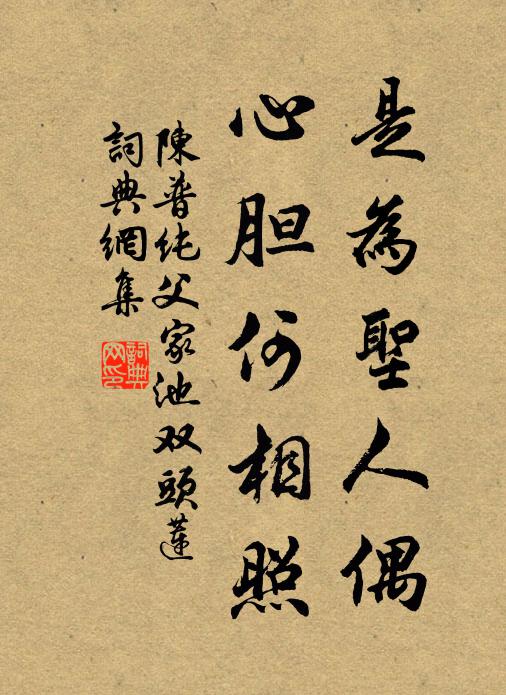 是為聖人偶
心胆何相照
陳普純父家池双頭蓮
詞典網集
詞典网印